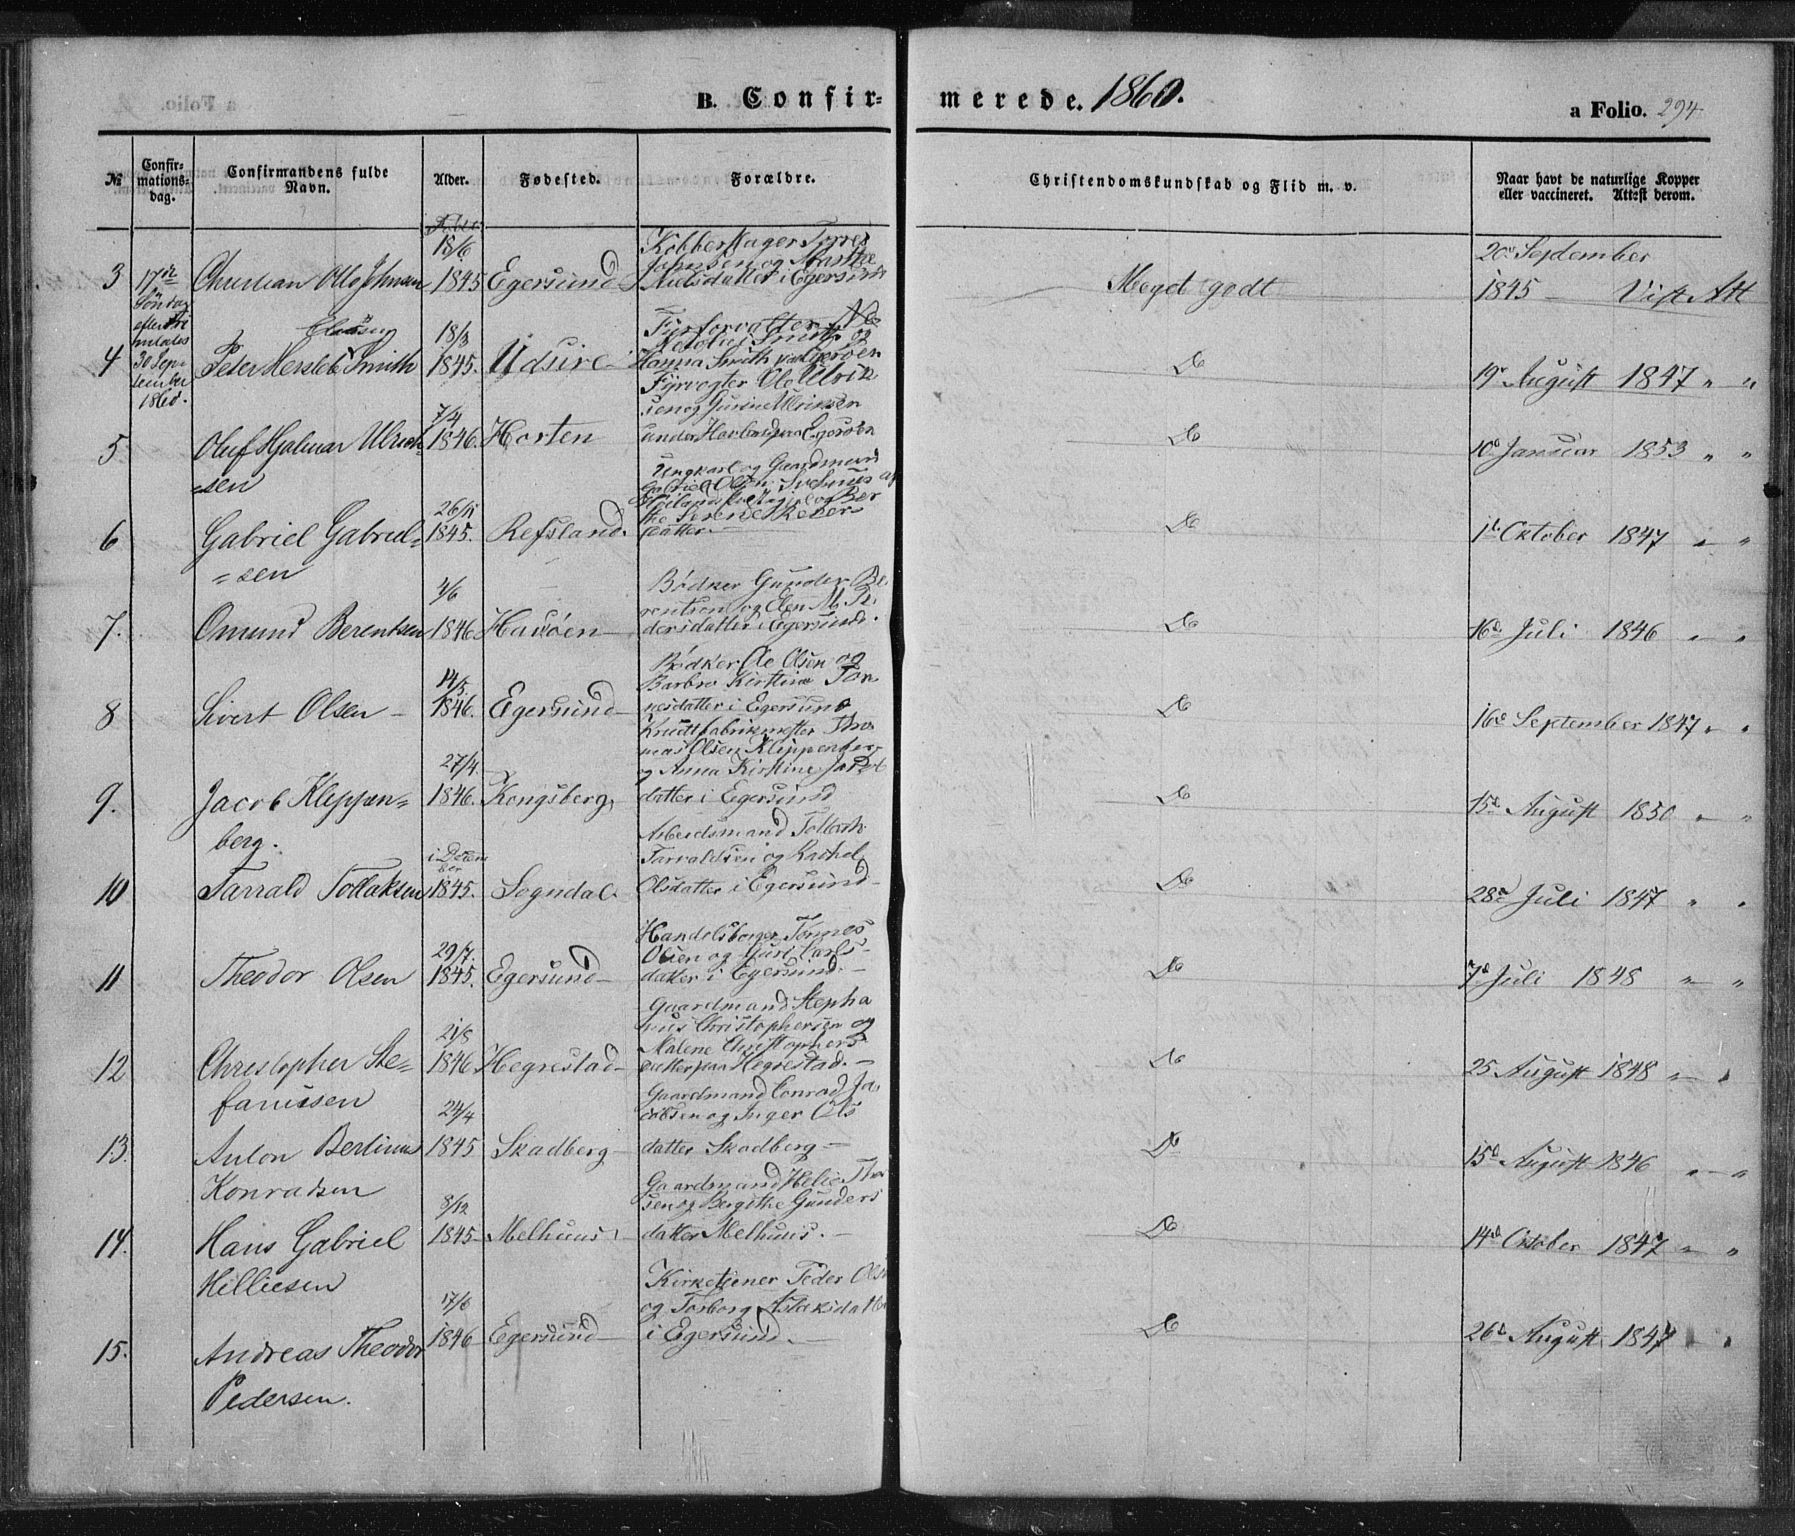 B. Confir- merede. 1860.
a Folio. 294
№
Confir-
mations-
dag.
Confirmandens fulde
Navn.
Alder.
Fødested.
Forældre.
Christendomskundskab og Flid m. v.
Naar havt de naturlige Kopper
eller vaccineret. Attest derom.
17de
Søndag
efter Tri
nitatis
30 Sep
tember
1860.
3 Christian Otto Johnsen
18/6
1845 Egersund
Kobberslager Tørres
Johnsen og Marthe
Nielsdatter i Egersund
Meget godt
20de September
1845 — Vist Att
4 Peter Hersleb Claüsen Smith
18/3
1845. Udsire
Fyrforvalter
Smith og
Hanna Smith paa Egerøen
Do
19de August 1847 " "
5 Oluf Hjalmar Ulrich-
=sen
7/4
1846. Horten
Fyrvogter Ole Ulrik
sen og Gurine Ulriksen
paa Egerøen
Do
10de Januar 1853 " "
6 Gabriel Gabriel=
=sen
26/11
1845. Refsland.
Ungkarl og Gaardmand
Gabriel Olsen
og Ber
the Serene
datter —
Do
1ste Oktober 1847 " "
7. Omund Berentsen
4/6
1846 Havsøen —
Bødker Gunder Be
rentsen og Elen M. Pe
dersdatter i Egersund.
Do
16de Juli 1846 " "
8 Sivert Olsen —
14/3
1846. Egersund —
Bødker Ole Olsen og
Barbro Kirstine Tør
nesdatter i Egersund
Do
16de September 1847 " "
9. Jacob Kleppen=
berg.
27/4.
1846. Kongsberg,
Krudtfabrikmester Tho
mas Olsen Kleppenberg
og Anna Kirstine Jacob
datter i Egersund
Do
15de August 1850 " "
10 Tarrald Tollaksen
i Decem
ber
1845. Sogndal.
Arbeidsmand Tollak
Tarraldsen og Rachel
Olsdatter i Egersund —
Do
28de Juli 1847 " "
11 Theodor Olsen
29/7.
1845. Egersund —
Handelsborger Tønnes
Olsen og Guri Carls-
datter i Egersund. —
Do
7de Juli 1848 " "
12 Christopher Ste=
fanussen
21/8
1846 Hegrestad —
Gaardmand Stepha
nus Christophersen og
Malene Christophers
datter paa Hegrestad. —
Do
25 August 1848 " "
13. Anton Bertinus
Konradsen
24/4
1845 Skadberg —
Gaardmand Conrad Ja
cobsen og Inger Ols
datter Skadberg —
Do
15de August 1846 " "
14. Hans Gabriel
Hilliesen
8/12
1845 — Melhuus
Gaardmand Helie Tho
sen og Bergithe Gunders
datter Melhuus. —
Do
14de Oktober 1847 " "
15. Andreas Theodor
Pedersen.
17/6
1846 Egersund —
Kirketjener Peder Olsen
og Torborg Aslaksdatter
i Egersund. —
Do
26de August 1847 " "